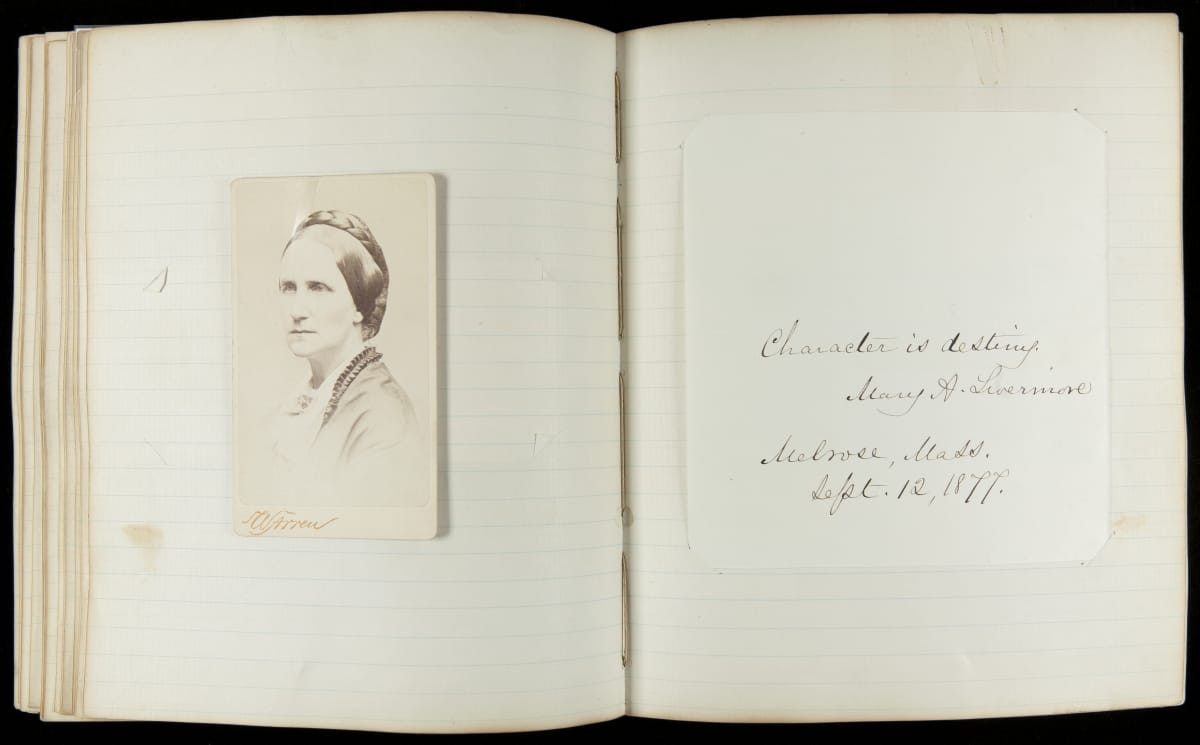 Warren
Character is destiny.
Mary A. Livermore
Melrose, Mass.
Sept. 12, 1877.